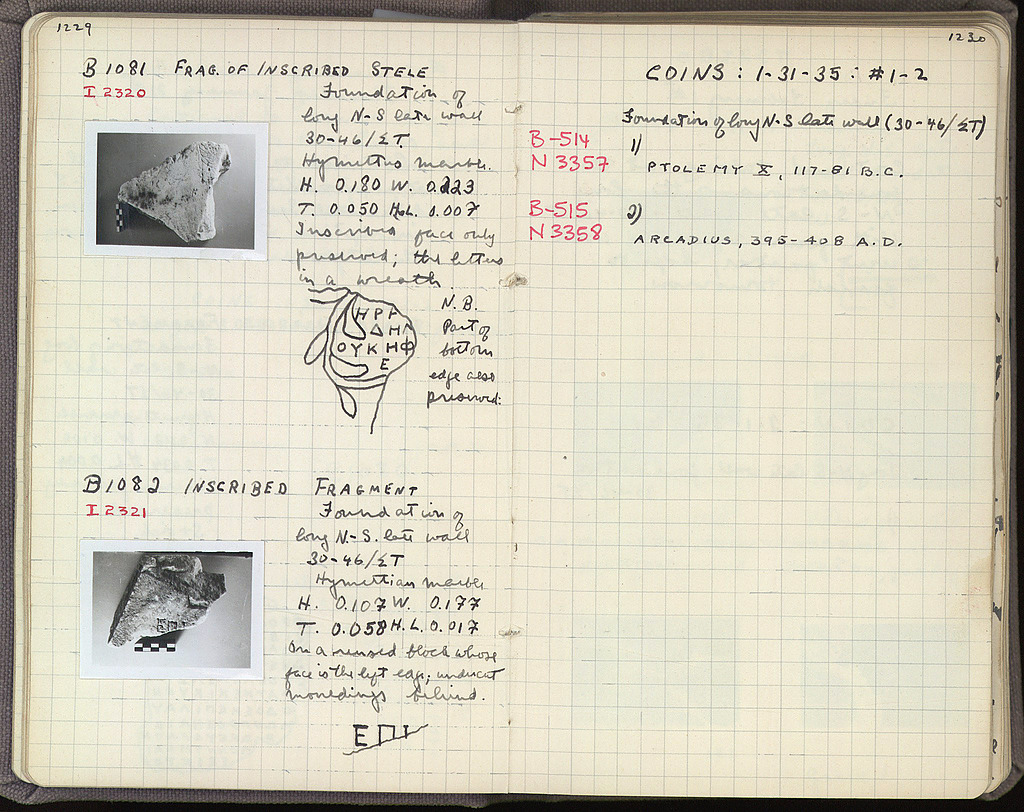 1229
B 1081 FRAG. OF INSCRIBED STELE
I 2320
Foundation of
long N-S late wall
30-46/ΣΤ.
Hymettus marble.
H. 0.180 W. 0.223
T. 0.050 H.L. 0.007
Inscribed face only
preserved; the letters
in a wreath.
ΗΡΓ
ΔΗΛ
ΟΥΚΗΦ
Ε
N.B.
Part of
bottom
edge also
preserved.
B 1082 INSCRIBED FRAGMENT
I 2321
Foundation of
long N-S. late wall
30-46/ΣΤ
Hymettian marble
H. 0.107 W. 0.177
T. 0.058 H.L. 0.017
On a reused block whose
face is the left edge; undercut
mouldings behind.
ΕΠΙ
1230
COINS: 1-31-35: #1-2
Foundation of long N-S late wall (30-46/ΣΤ)
B-514
N 3357
1)
PTOLEMY X, 117-81 B.C.
B-515
N 3358
2)
ARCADIUS, 395-408 A.D.